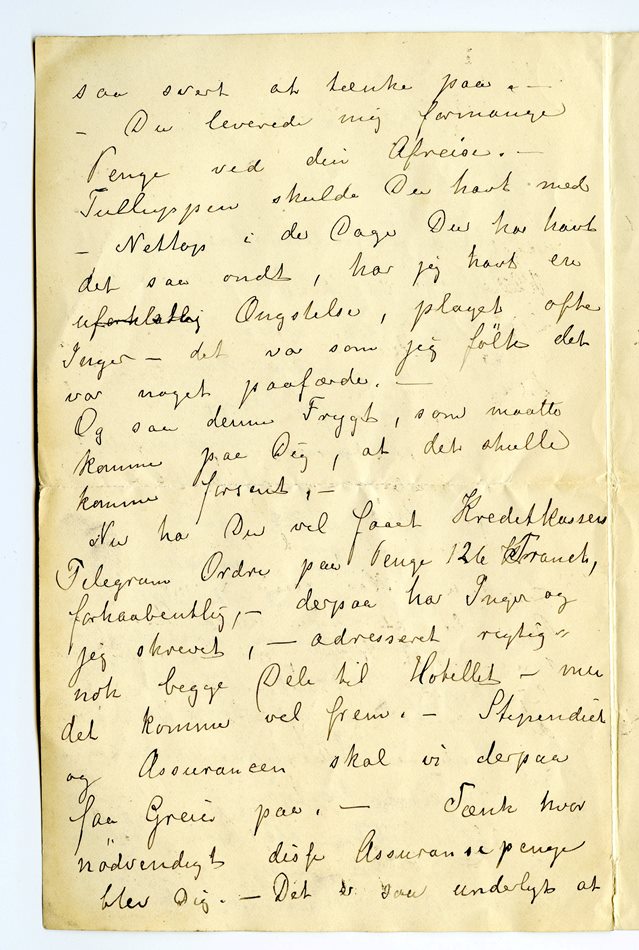 saa svert at tænke paa. —
– Du leverede mig formange
Penge ved din Afreise. —
Tulluppen skulde Du havt med
– Nettop i de Dage Du har havt
det saa ondt, har jeg havt en
uforklarlig Ongstelse, plaget ofte
Inger – det var som jeg følte det
var noget paafærde. —
Og saa denne Frygt, som maatte
komme paa Dig, at det skulle
komme forsent. –
Nu har Du vel faaet Kreditkassens
Telegram Ordre paa Penge 126 Francs,
forhaabentlig, – derpaa har Inger og
jeg skrevet, – adresseret rigtig=
nok begge Dele til Hotellet – men
det kommer vel frem. – Stipendiet
og Assurancen skal vi derpaa
faa Greie paa. — Tænk hvor
nödvendigt disse Assuransepenge
blev Dig. – Det er saa underligt at